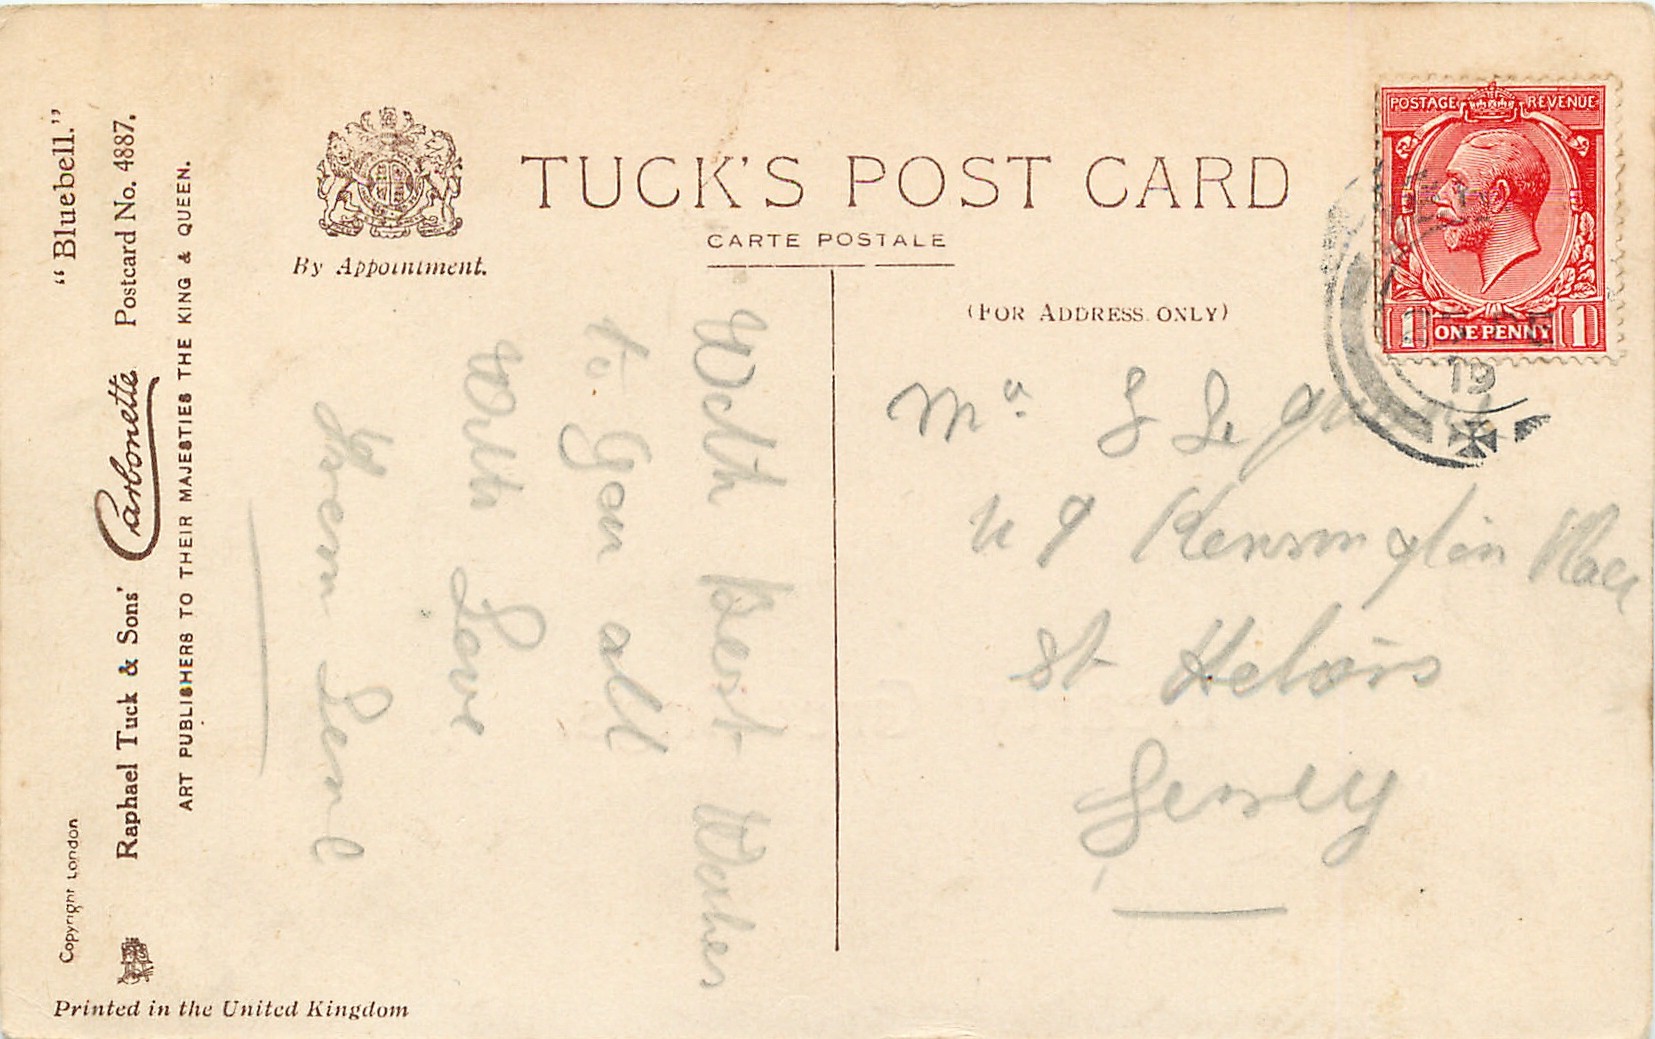 "Bluebell."
Raphael Tuck & Sons' Carbonette Postcard No. 4887.
ART PUBLISHERS TO THEIR MAJESTIES THE KING & QUEEN.
Copyright London
Printed in the United Kingdom
By Appointment.
TUCK'S POST CARD
CARTE POSTALE
(FOR ADDRESS ONLY)
POSTAGE REVENUE
1 ONE PENNY 1
19
With Best Wishes
to you all
With Love
from
St
Kensington Place
Jersey